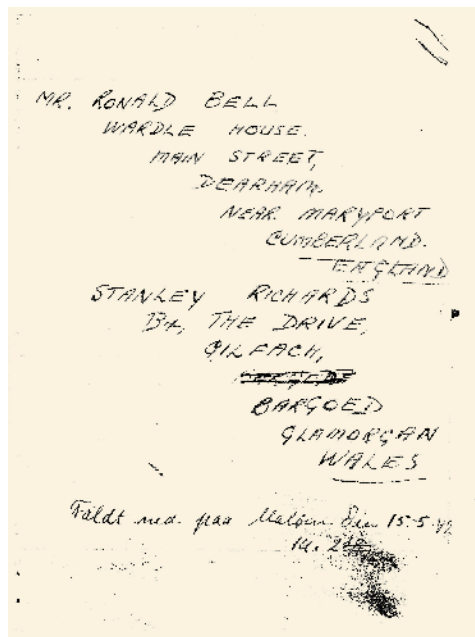 MR. RONALD BELL
WARDLE HOUSE.
MAIN STREET,
DEARHAM.
NEAR MARYPORT
CUMBERLAND.
ENGLAND
STANLEY RICHARDS
THE DRIVE,
GILFACH,
BARGOED
GLAMORGAN
WALES
Faldt ned paa Den 15-5-42
Kl.